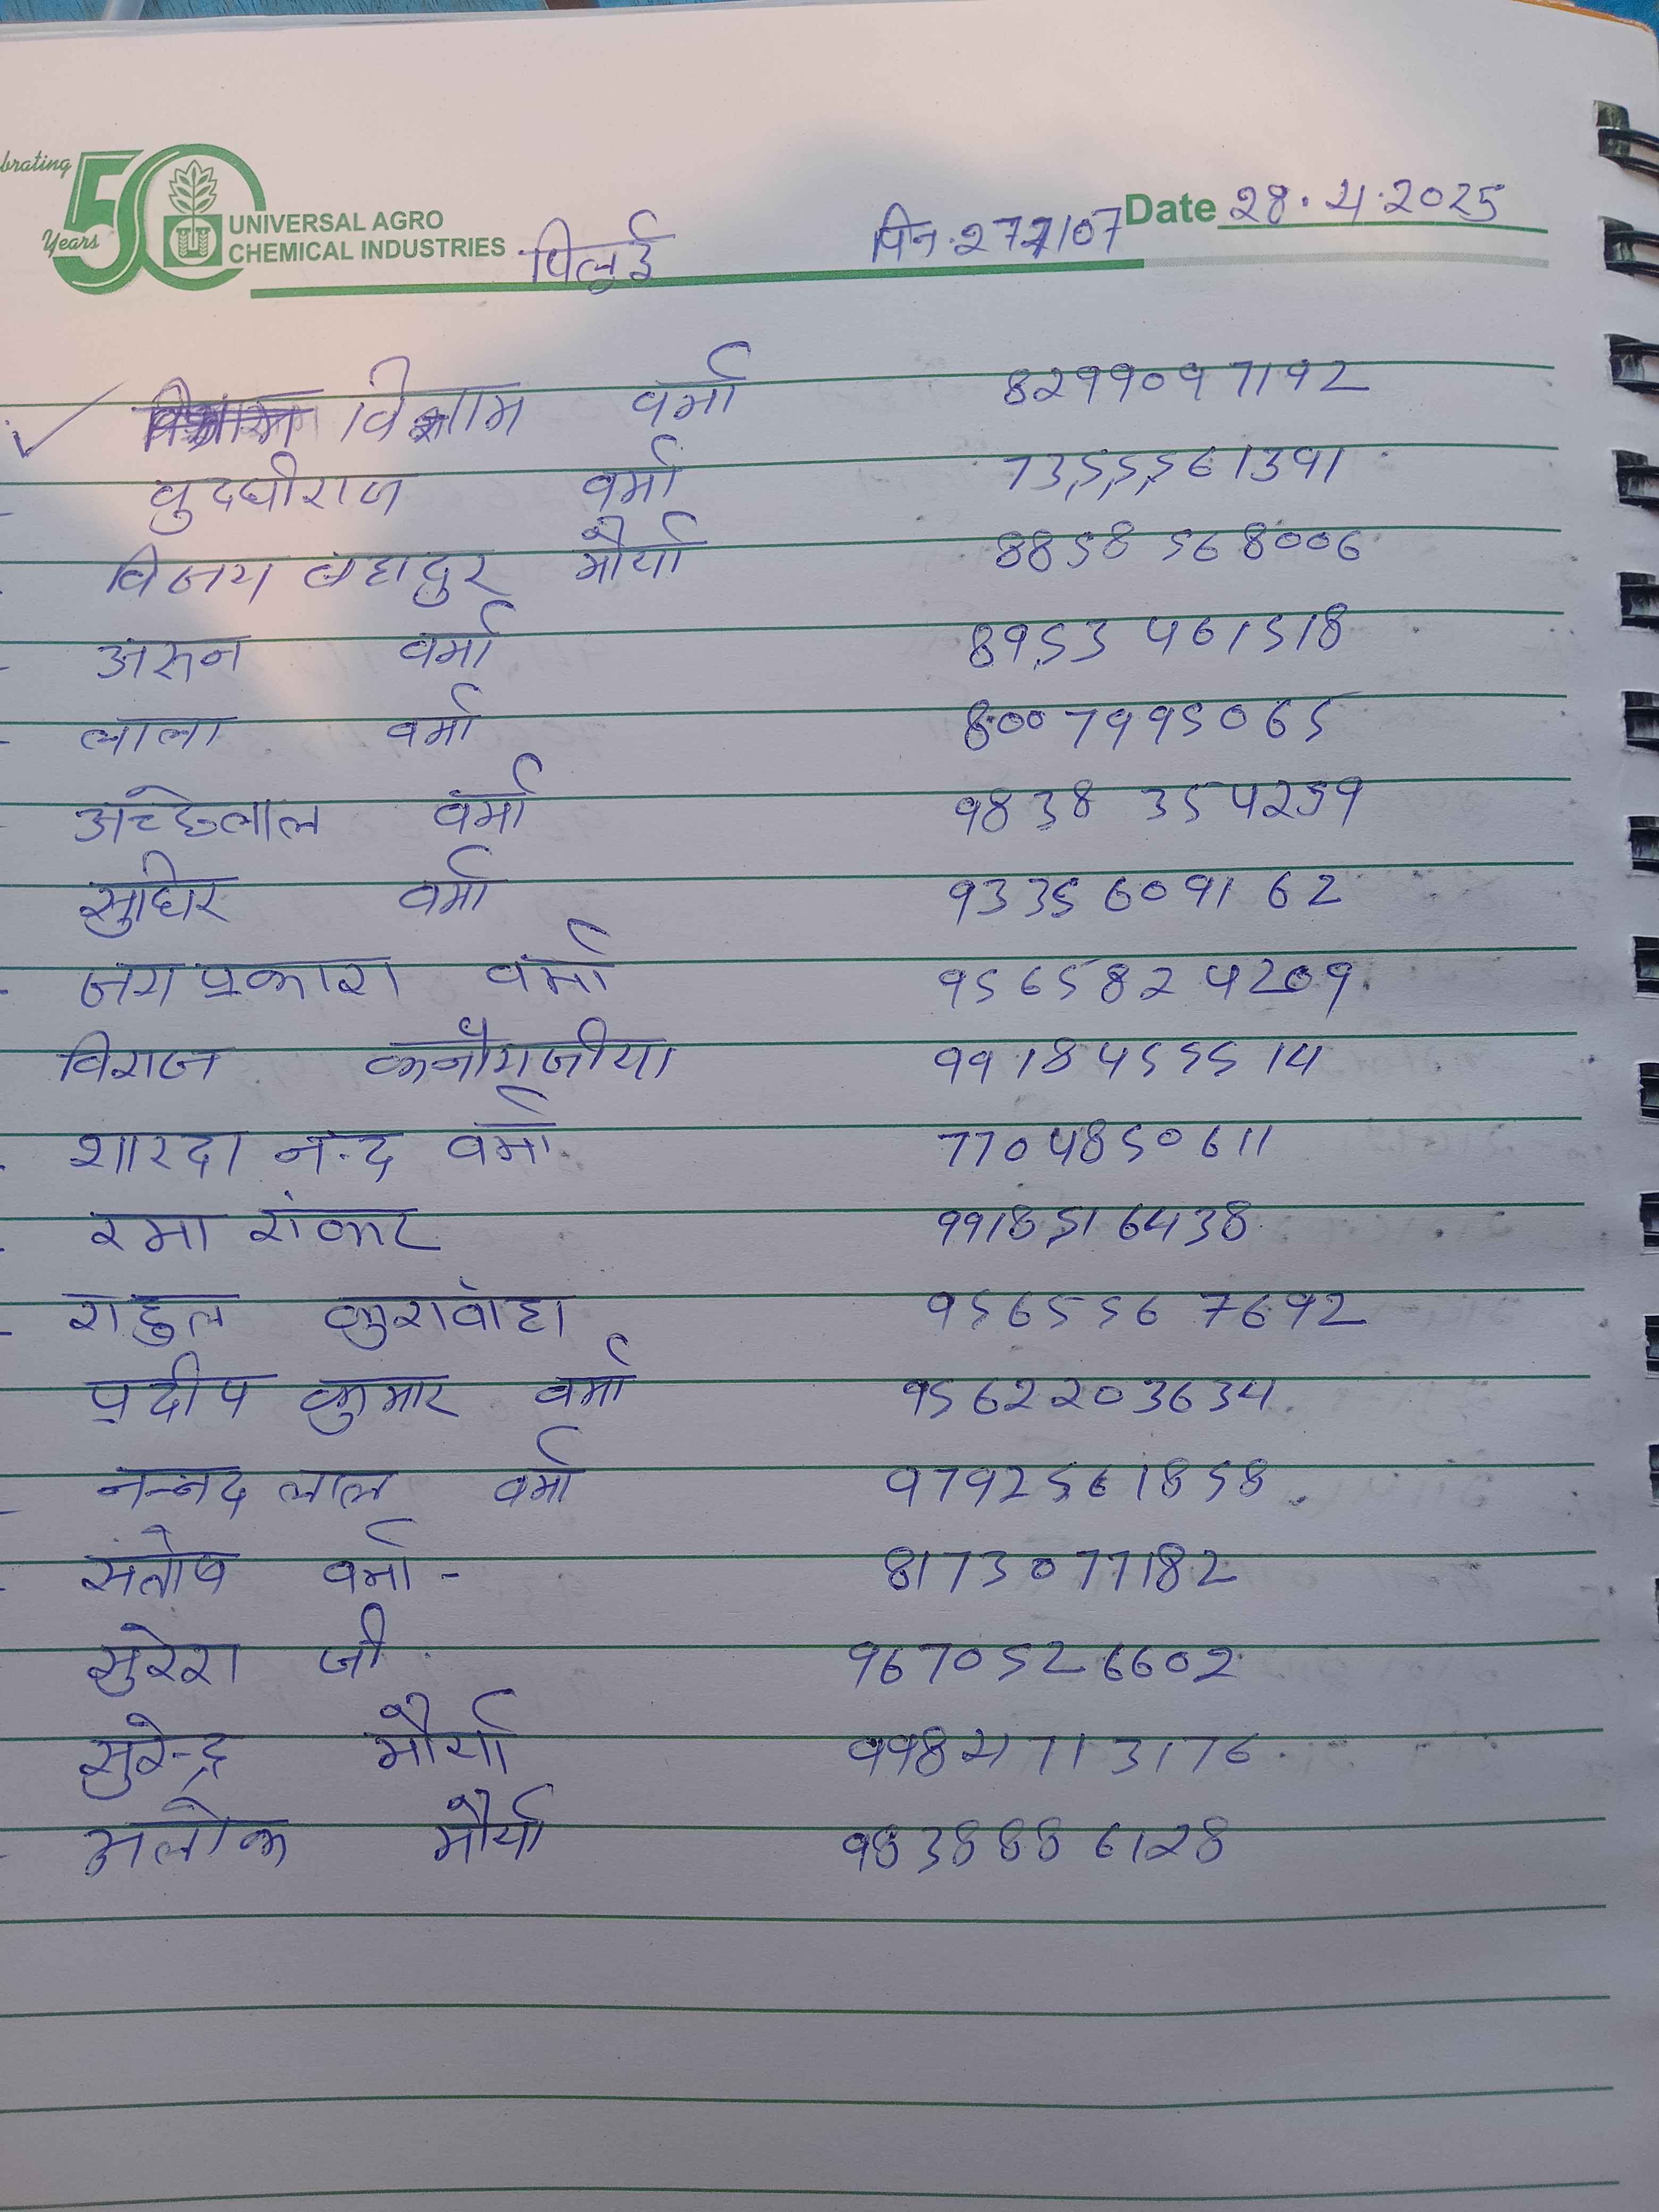 brating
50
Years
UNIVERSAL AGRO
CHEMICAL INDUSTRIES
पिलुई पिन.277107 Date 28.4.2025
विश्राम वर्मा 8299097192
वुदधीराज वर्मा 7355561391
विजय बहादुर मौर्या 8858568006
अरुन वर्मा 8953461518
लाला वर्मा 8007995065
अच्छेलाल वर्मा 9838354259
सुधिर वर्मा 9335609162
जयप्रकाश वर्मा 9565824209
विराज कनौजीया 9918455514
शारदा नन्द वर्मा 7704850611
रमा शंकर 9918516438
राहुल कुशवाहा 9565567692
प्रदीप कुमार वर्मा 9562203634
नन्नद लाल वर्मा 9792561858
संतोष वर्मा - 8173077182
सुरेश जी 9670526602
सुरेन्द्र मौर्या 9984713176
अलोक मौर्या 9838886128